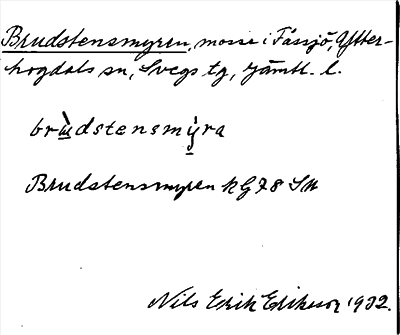 Brudstensmyren, mosse i Fåssjö, Ytter-
hogdals sn, Svegs tg, Jämtl. l.
brùdstensmỳra
Brudstensmyren kG78 SU
Nils Erik Eriksson 1932.